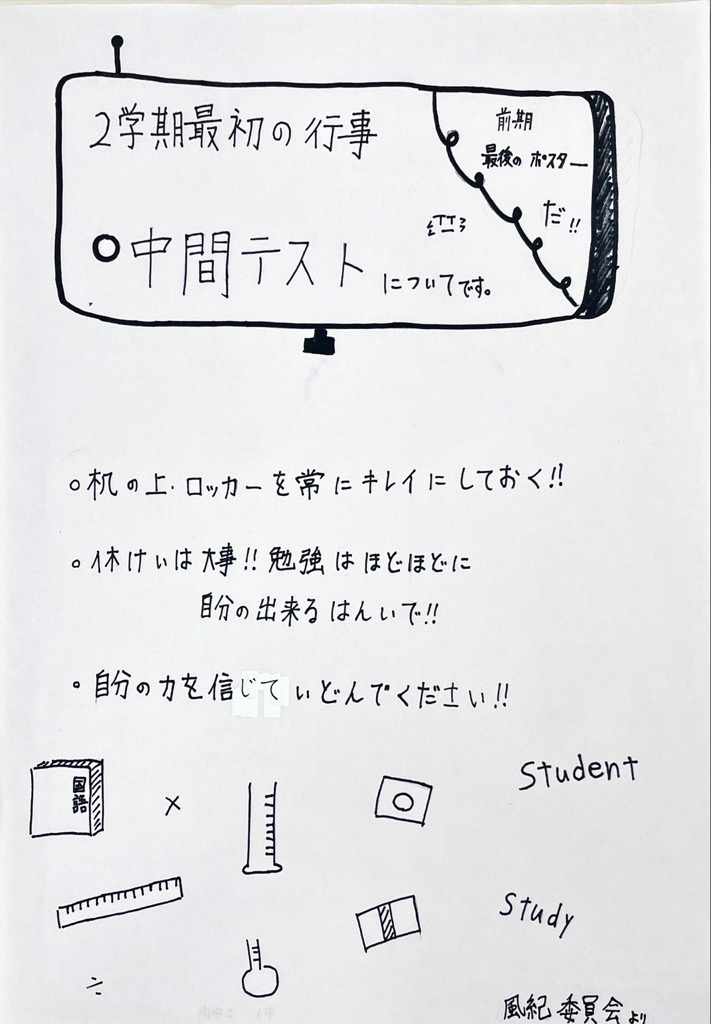 2学期最初の行事
前期
最後のポスター
だ!!
○中間テスト
についてです。
○机の上・ロッカーを常にキレイにしておく!!
○休けいは大事!!勉強はほどほどに
自分の出来るはんいで!!
○自分の力を信じていどんでください!!
国語
×
Student
Study
÷
風紀委員会より